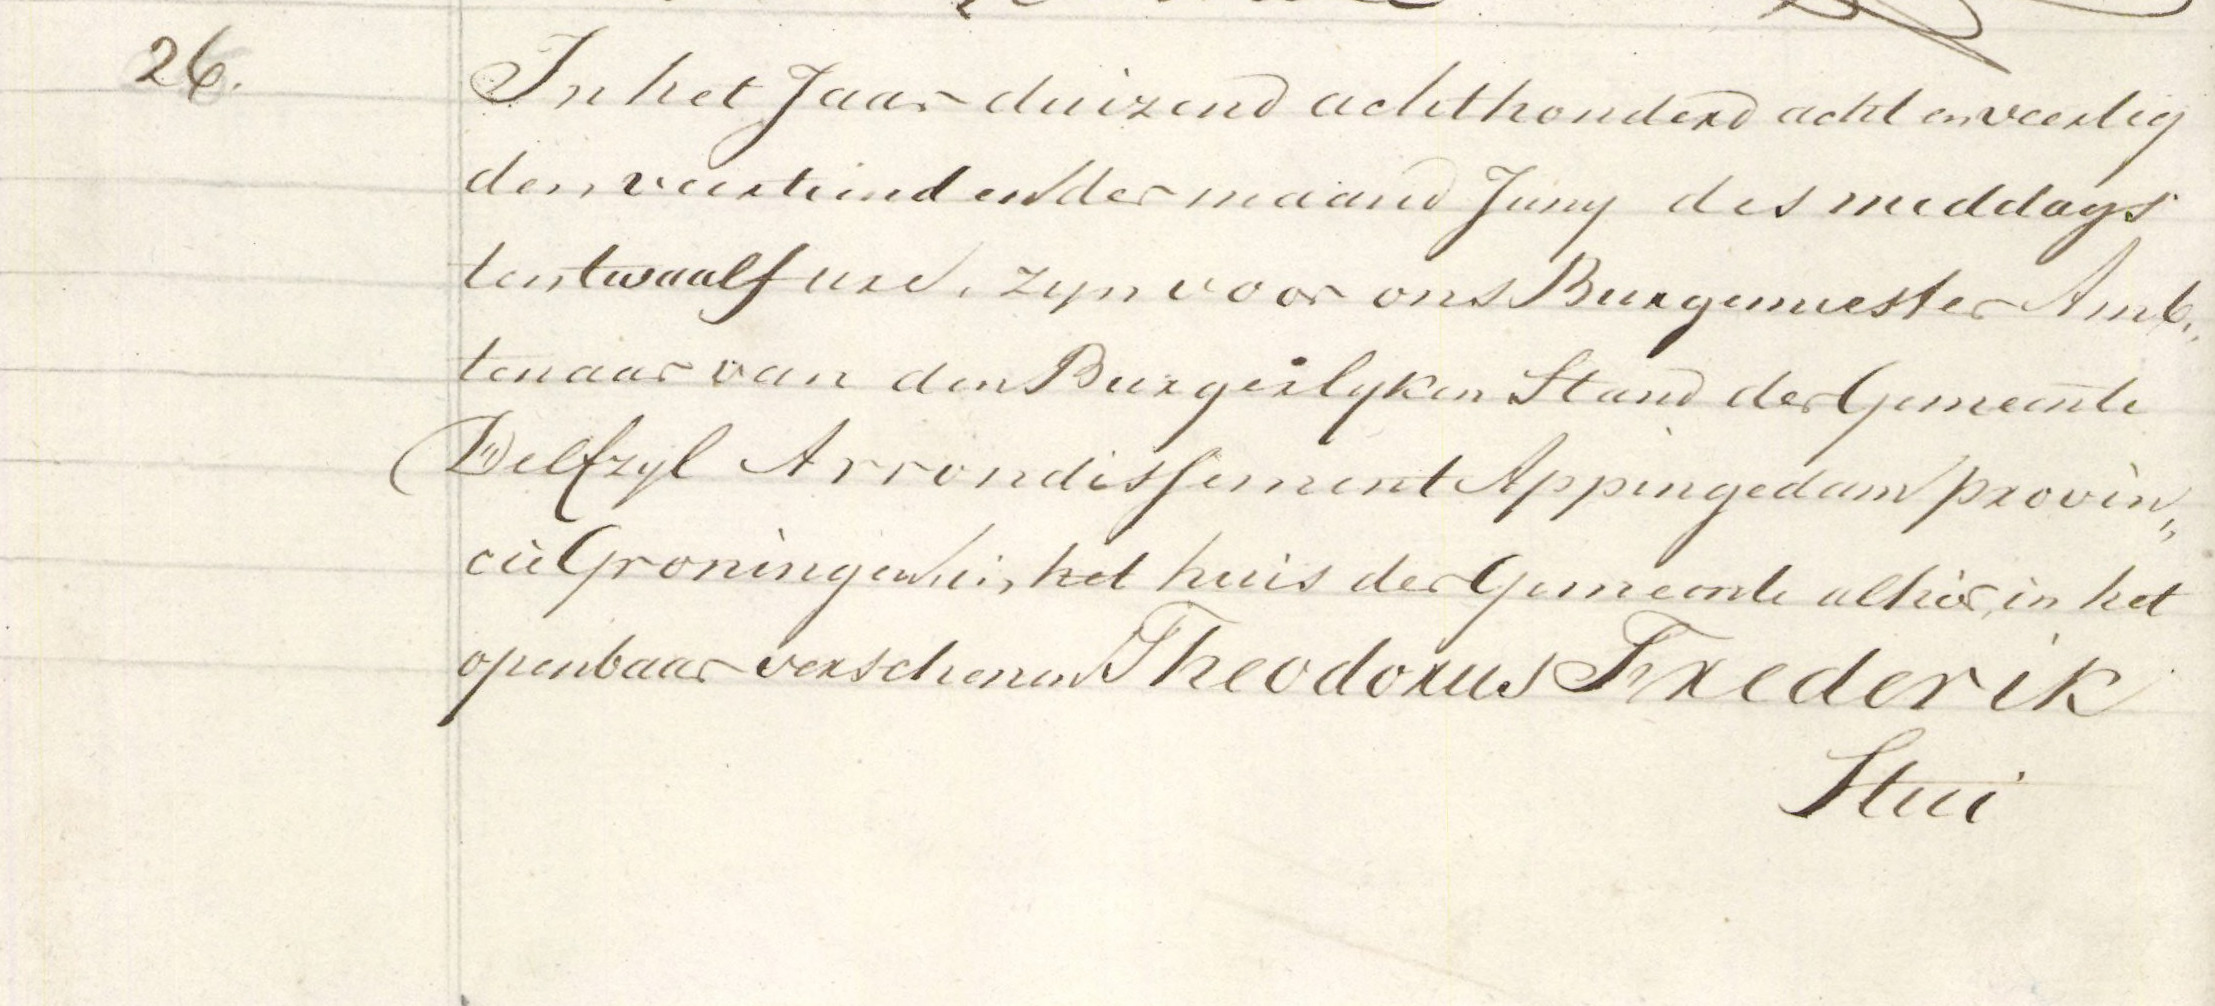 26.
In het Jaar duizend achthonderd acht en veertig
den veertienden der maand Juny des middags
ten twaalf ure, zyn voor ons Burgemeester Amb„
tenaar van den Burgerlyken Stand der Gemeente
Delfzyl Arrondissement Appingedam provin„
cie Groningen in het huis der Gemeente alhier, in het
openbaar verschenen Theodorus Frederik
Stui